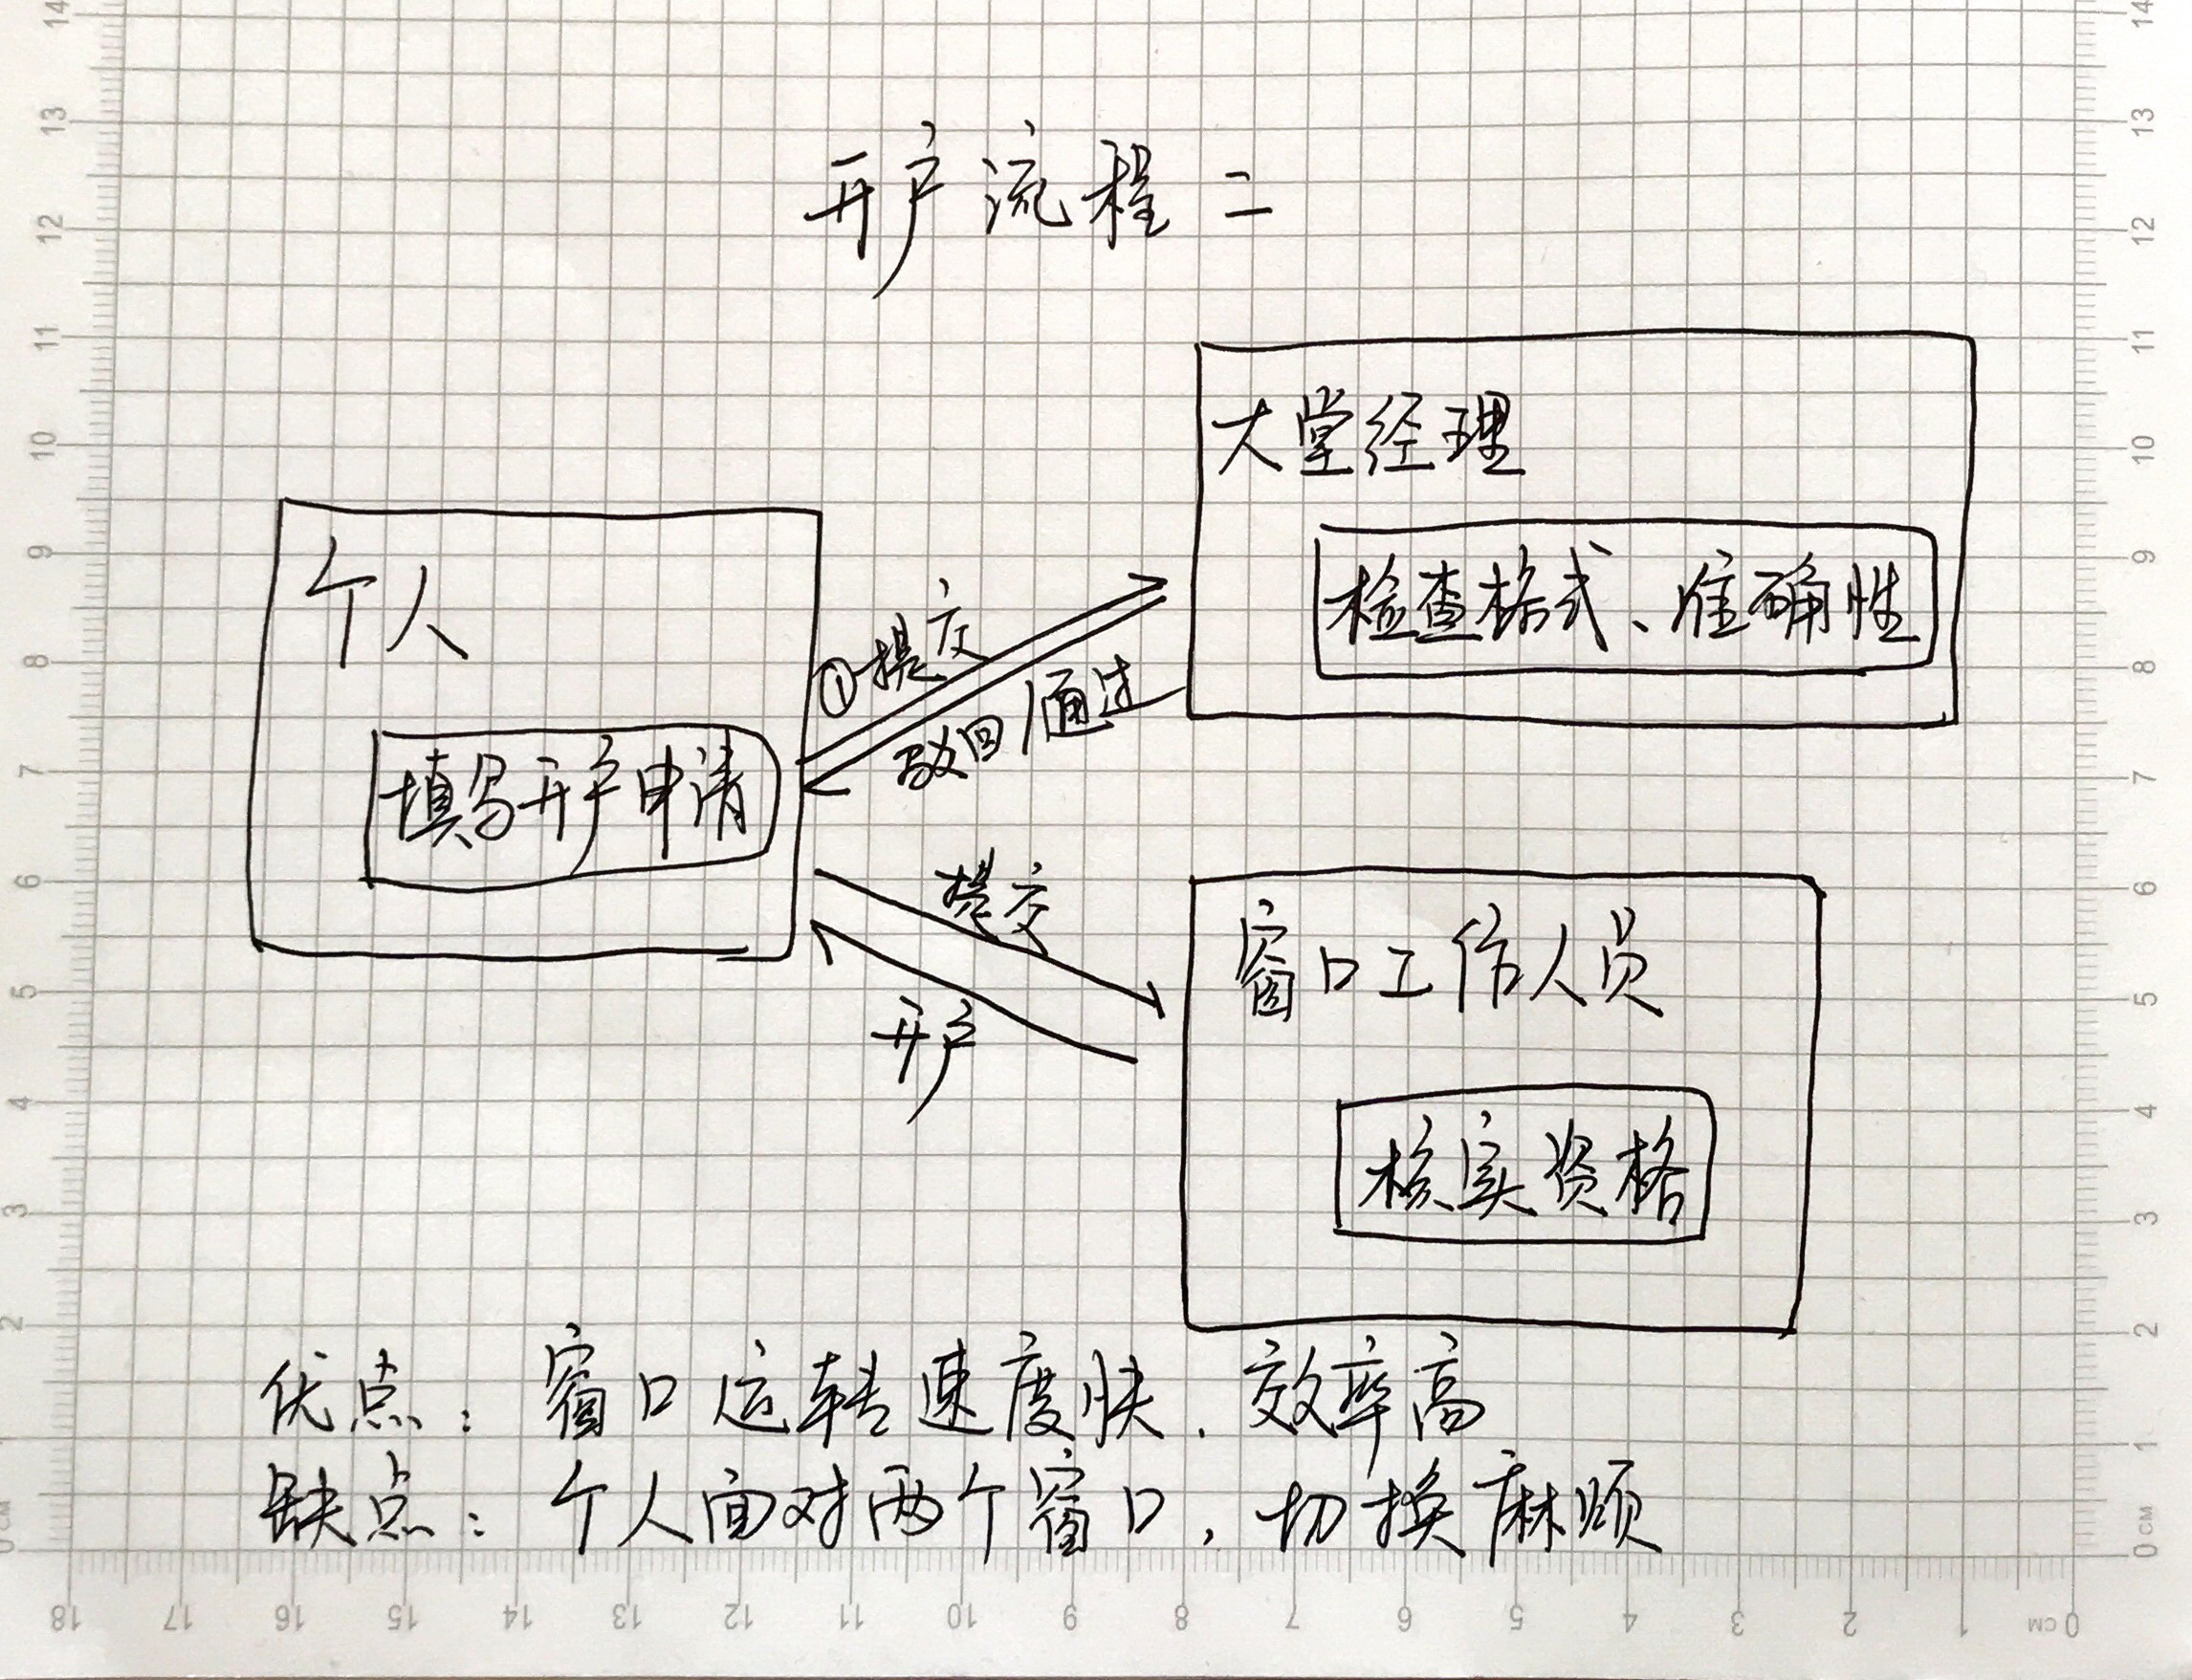 开户流程二
大堂经理
检查格式、准确性
个人
填写开户申请
①提交
驳回/通过
提交
开户
窗口工作人员
核实资格
优点：窗口运转速度快，效率高
缺点：个人面对两个窗口，切换麻烦
14
13
12
11
10
9
8
7
6
5
4
3
2
1
0 CM
14
13
12
11
10
9
8
7
6
5
4
3
2
1
0 CM
18 17 16 15 14 13 12 11 10 9 8 7 6 5 4 3 2 1 0 CM